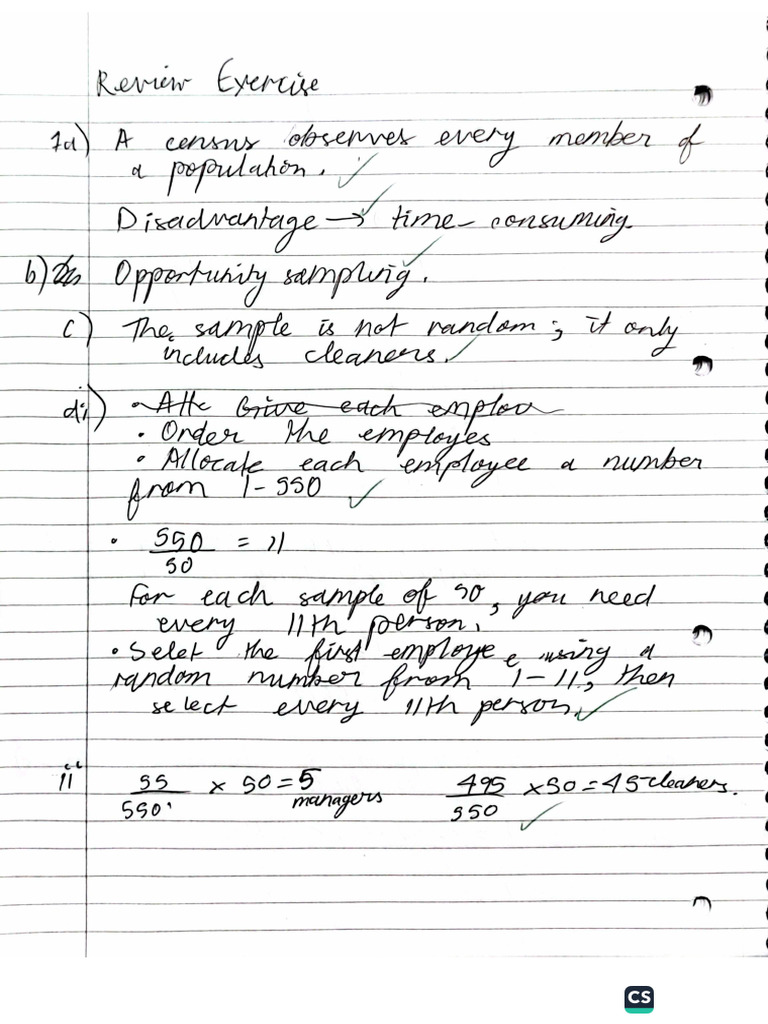 Review Exercise
1a) A census observes every member of
a population.
Disadvantage → time-consuming.
b) Opportunity sampling.
c) The sample is not random; it only
includes cleaners.
di) • Atte Give each employ
• Order the employes
• Allocate each employee a number
from 1-550
• 550/50 = 11
For each sample of 50, you need
every 11th person.
• Selet the first employee using a
random number from 1-11, then
select every 11th person.
ii 55/550 × 50 = 5 managers 495/550 × 50 = 45 cleaners.
CS